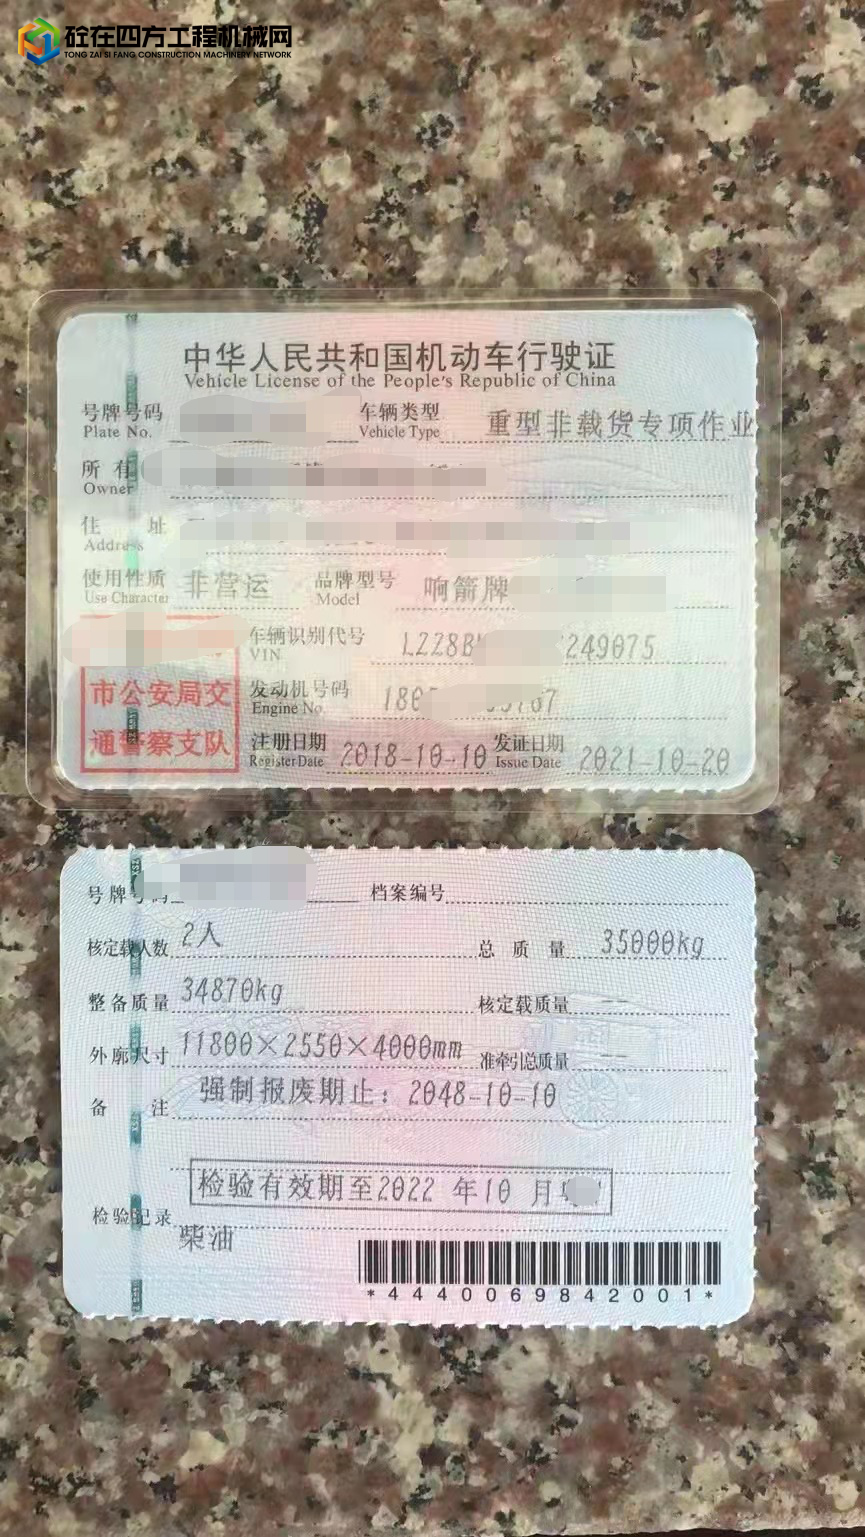 砼在四方工程机械网
TONG ZAI SI FANG CONSTRUCTION MACHINERY NETWORK
中华人民共和国机动车行驶证
Vehicle License of the People's Republic of China
号牌号码 车辆类型 重型非载货专项作业
Plate No. Vehicle Type
所有
Owner
住 址
Address
使用性质 非营运 品牌型号 响箭牌
Use Character Model
车辆识别代号 LZZ8B 249075
VIN
市公安局交 发动机号码 180
Engine No.
通警察支队 注册日期 2018-10-10 发证日期 2021-10-20
Register Date Issue Date
号牌号码 档案编号
核定载人数 2人 总质量 35000kg
整备质量 34870kg 核定载质量 --
外廓尺寸 11800×2550×4000mm 准牵引总质量 --
备 注 强制报废期止：2048-10-10
检验有效期至2022 年10 月
检验记录
柴油
*4440069842001*